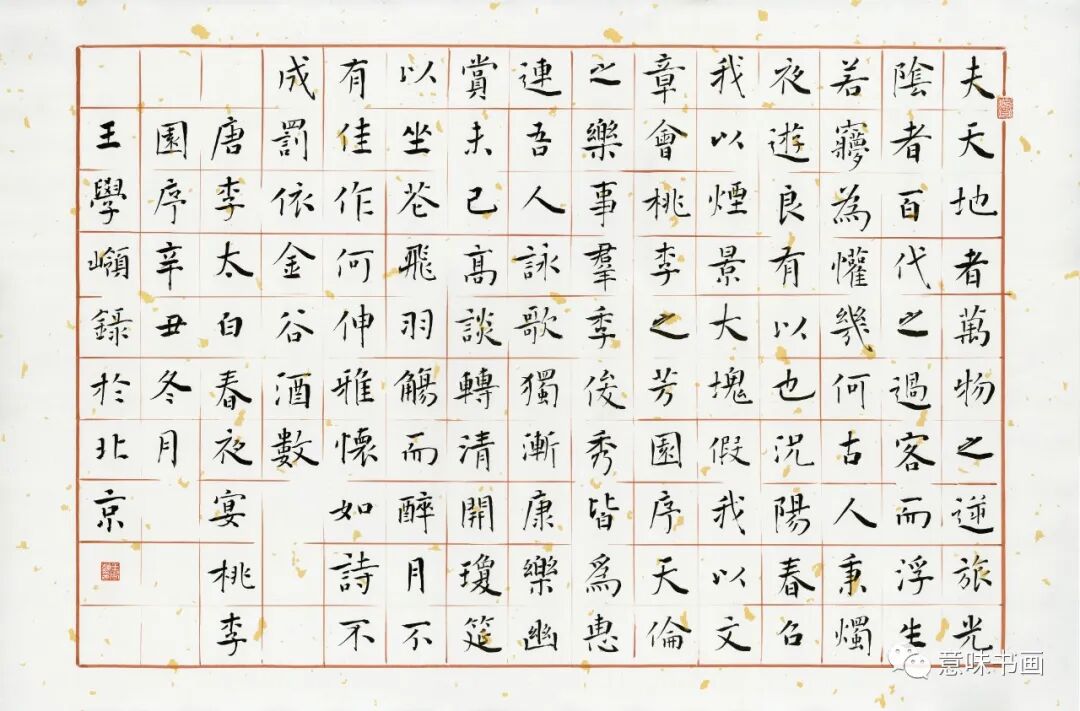 夫天地者萬物之逆旅光
陰者百代之過客而浮生
若㝱為懽幾何古人秉燭
夜遊良有以也況陽春召
我以煙景大塊假我以文
章會桃李之芳園序天倫
之樂事羣季俊秀皆爲惠
連吾人詠歌獨漸康樂幽
賞未已高談轉清開瓊筵
以坐花飛羽觴而醉月不
有佳作何伸雅懷如詩不
成罰依金谷酒數
唐李太白春夜宴桃李
園序辛丑冬月
王學嶺錄於北京
意味书画